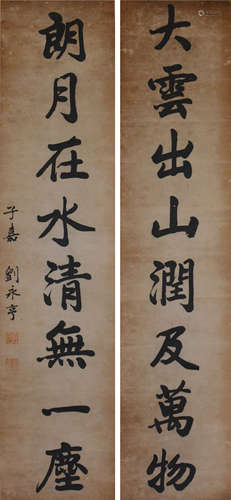 大雲出山潤及萬物
朗月在水清無一塵
子嘉 劉永亨